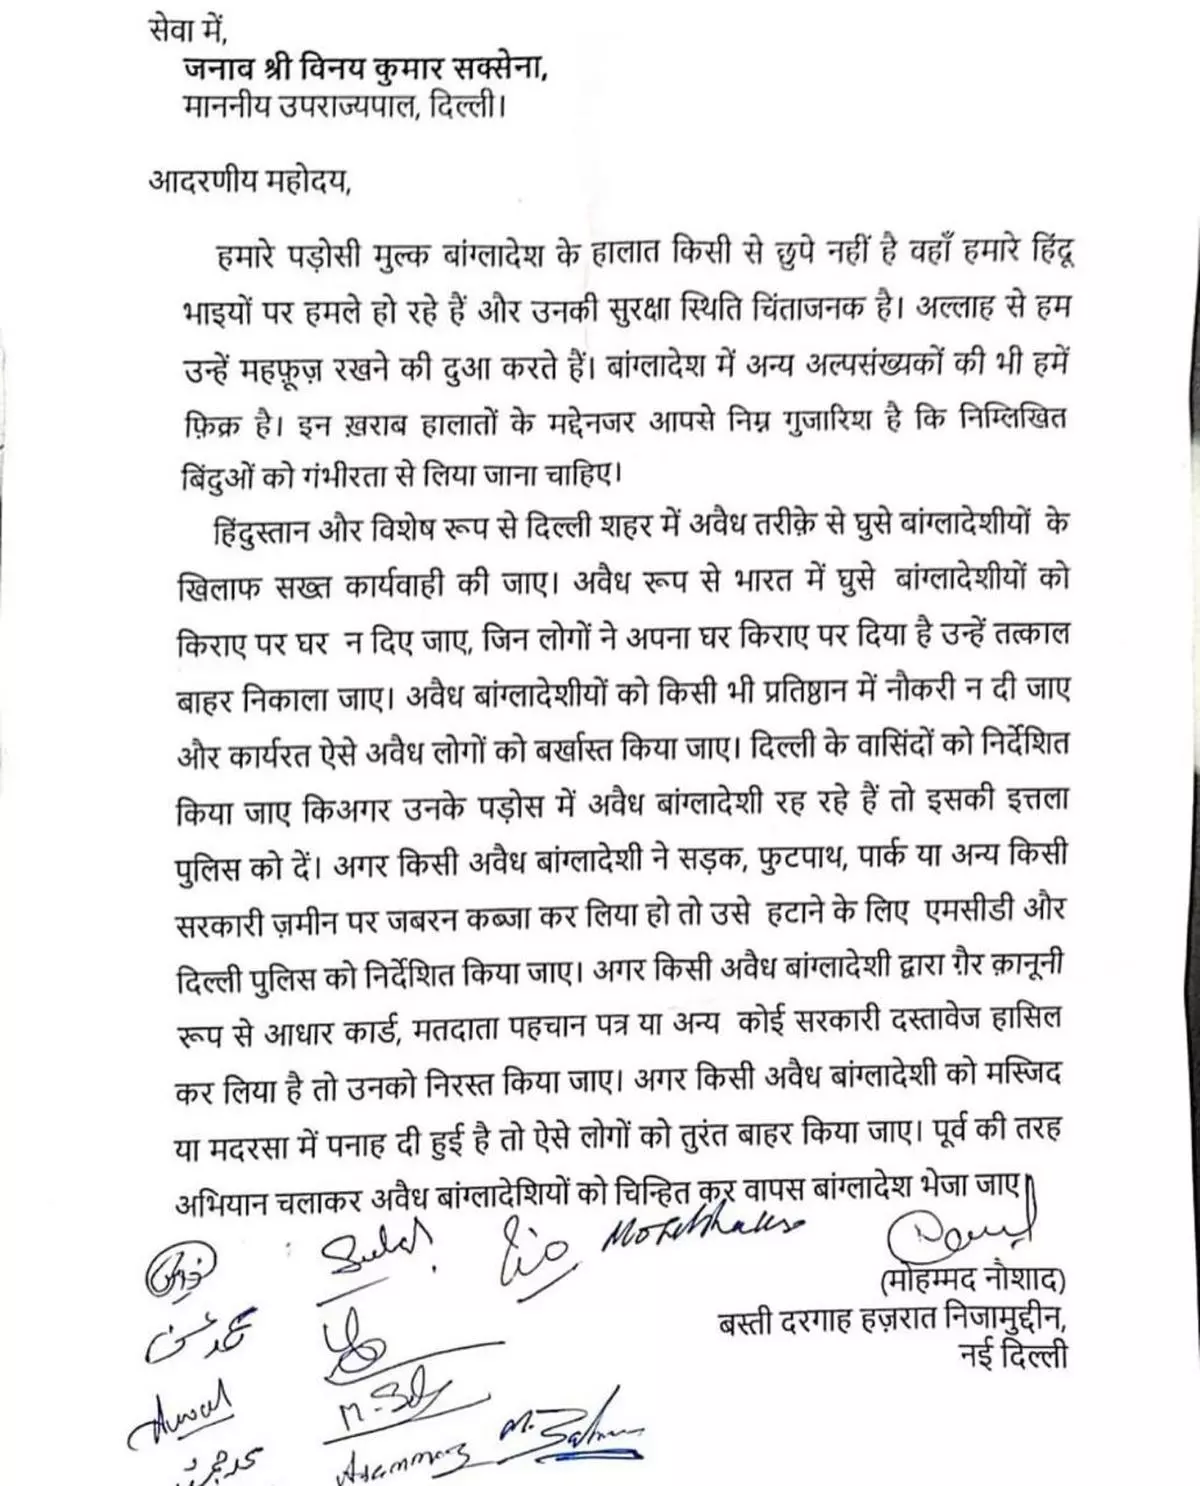 सेवा में,
जनाब श्री विनय कुमार सक्सेना,
माननीय उपराज्यपाल, दिल्ली।
आदरणीय महोदय,
हमारे पड़ोसी मुल्क बांग्लादेश के हालात किसी से छुपे नहीं है वहाँ हमारे हिंदू
भाइयों पर हमले हो रहे हैं और उनकी सुरक्षा स्थिति चिंताजनक है। अल्लाह से हम
उन्हें महफ़ूज़ रखने की दुआ करते हैं। बांग्लादेश में अन्य अल्पसंख्यकों की भी हमें
फ़िक्र है। इन ख़राब हालातों के मद्देनजर आपसे निम्न गुजारिश है कि निम्लिखित
बिंदुओं को गंभीरता से लिया जाना चाहिए।
हिंदुस्तान और विशेष रूप से दिल्ली शहर में अवैध तरीक़े से घुसे बांग्लादेशीयों के
खिलाफ सख्त कार्यवाही की जाए। अवैध रूप से भारत में घुसे बांग्लादेशीयों को
किराए पर घर न दिए जाए, जिन लोगों ने अपना घर किराए पर दिया है उन्हें तत्काल
बाहर निकाला जाए। अवैध बांग्लादेशीयों को किसी भी प्रतिष्ठान में नौकरी न दी जाए
और कार्यरत ऐसे अवैध लोगों को बर्खास्त किया जाए। दिल्ली के वासिंदों को निर्देशित
किया जाए किअगर उनके पड़ोस में अवैध बांग्लादेशी रह रहे हैं तो इसकी इत्तला
पुलिस को दें। अगर किसी अवैध बांग्लादेशी ने सड़क, फुटपाथ, पार्क या अन्य किसी
सरकारी ज़मीन पर जबरन कब्जा कर लिया हो तो उसे हटाने के लिए एमसीडी और
दिल्ली पुलिस को निर्देशित किया जाए। अगर किसी अवैध बांग्लादेशी द्वारा ग़ैर क़ानूनी
रूप से आधार कार्ड, मतदाता पहचान पत्र या अन्य कोई सरकारी दस्तावेज हासिल
कर लिया है तो उनको निरस्त किया जाए। अगर किसी अवैध बांग्लादेशी को मस्जिद
या मदरसा में पनाह दी हुई है तो ऐसे लोगों को तुरंत बाहर किया जाए। पूर्व की तरह
अभियान चलाकर अवैध बांग्लादेशियों को चिन्हित कर वापस बांग्लादेश भेजा जाए।
(मोहम्मद नौशाद)
बस्ती दरगाह हज़रात निजामुद्दीन,
नई दिल्ली